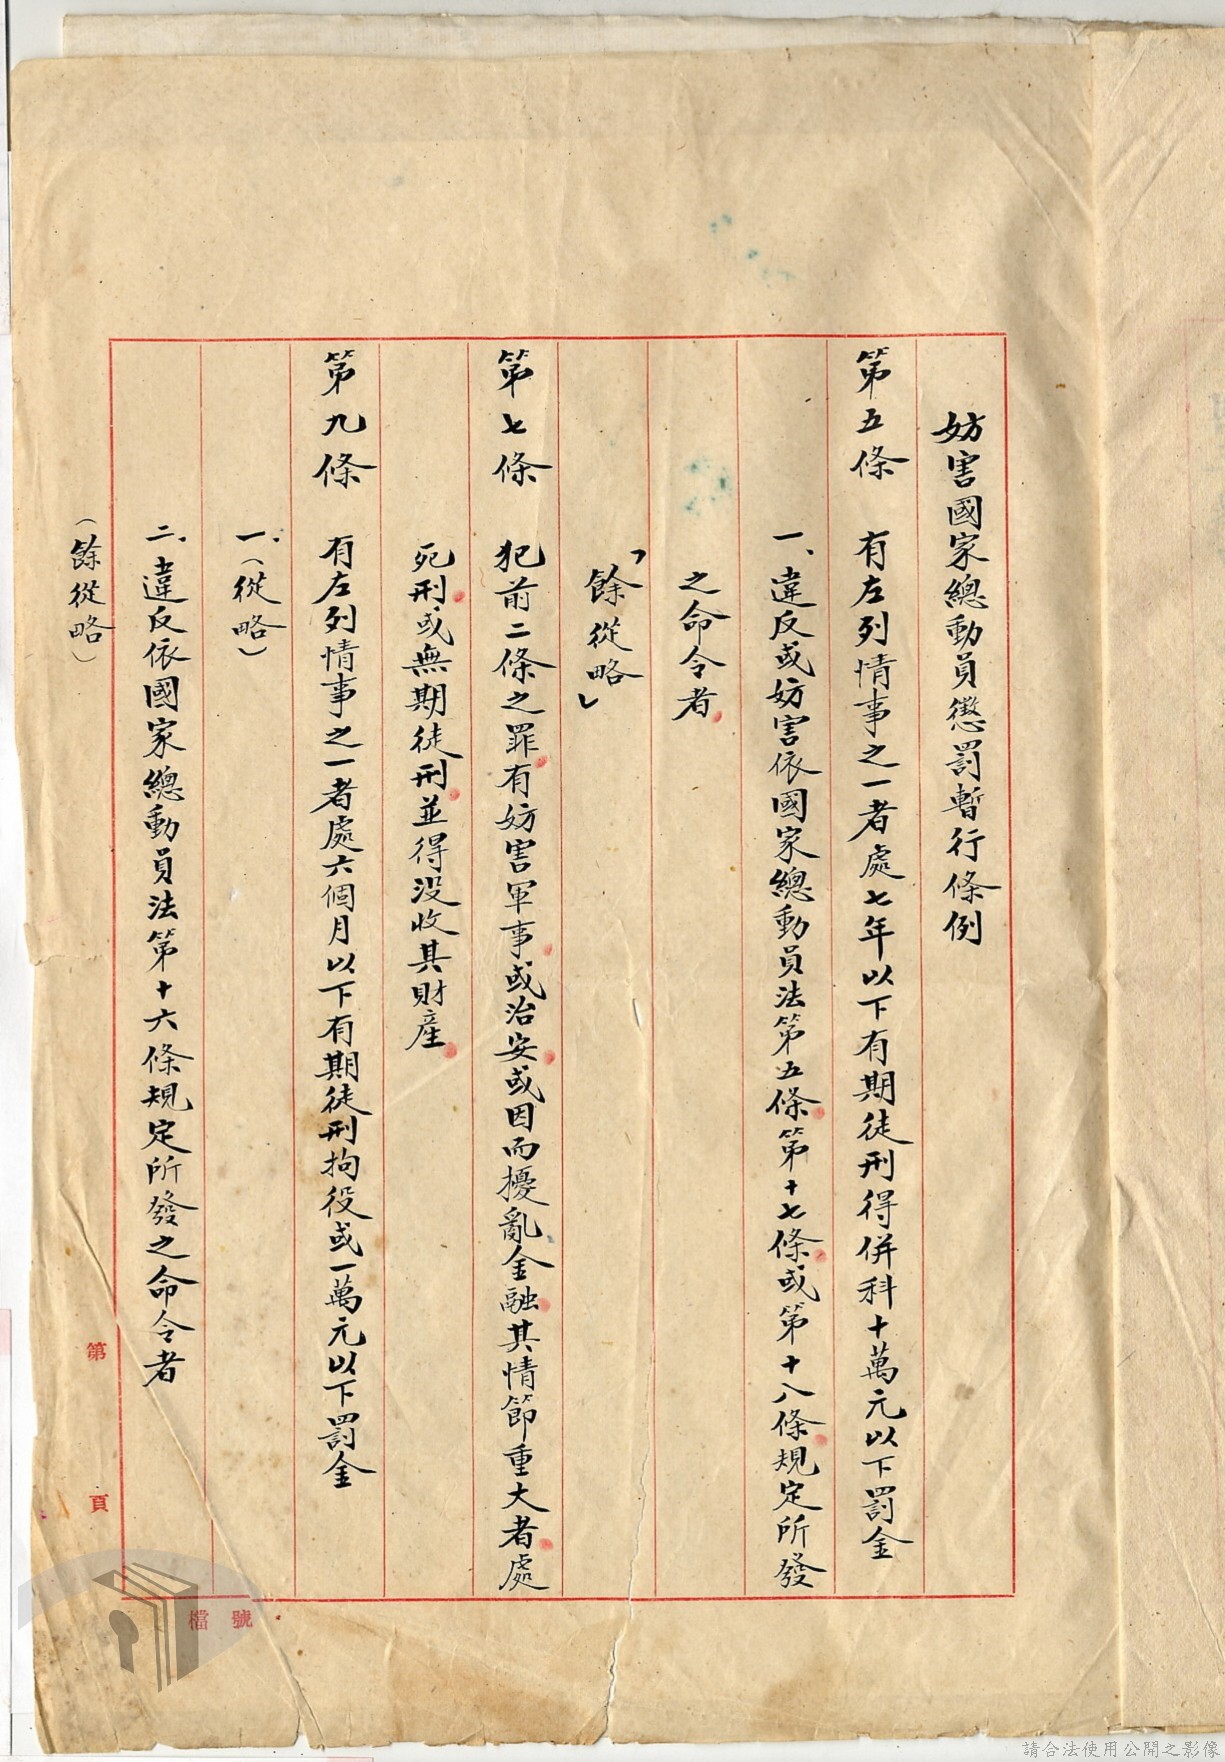 妨害國家總動員懲罰暫行條例
第五條　有左列情事之一者處七年以下有期徒刑得併科十萬元以下罰金
一、違反或妨害依國家總動員法第五條第十七條或第十八條規定所發
之命令者
「餘從略」
第七條　犯前二條之罪有妨害軍事或治安或因而擾亂金融其情節重大者處
死刑或無期徒刑並得没收其財產
第九條　有左列情事之一者處六個月以下有期徒刑拘役或一萬元以下罰金
一、（從略）
二、違反依國家總動員法第十六條規定所發之命令者
（餘從略）
第　頁
檔號
請合法使用公開之影像